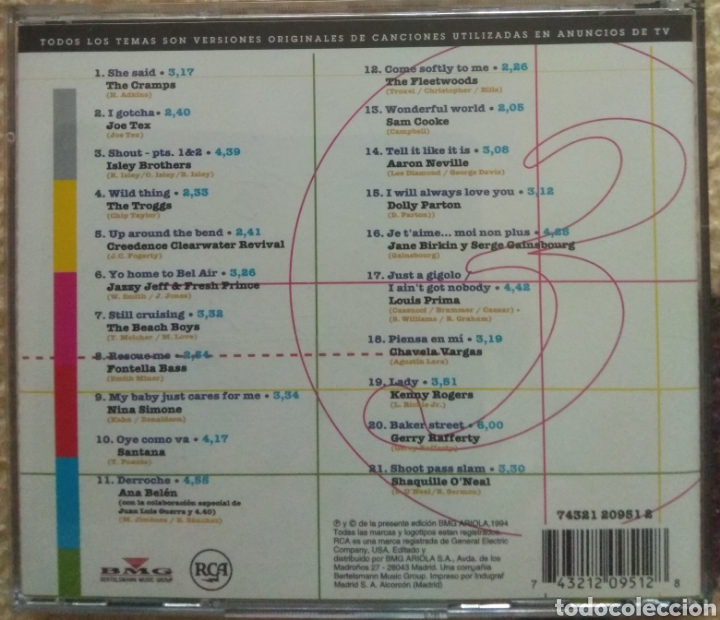 TODOS LOS TEMAS SON VERSIONES ORIGINALES DE CANCIONES UTILIZADAS EN ANUNCIOS DE TV
1. She said • 3,17
The Cramps
(H. Adkins)
2. I gotcha • 2,40
Joe Tex
(Joe Tex)
3. Shout - pts. 1&2 • 4,39
Isley Brothers
(R. Isley/O. Isley/R. Isley)
4. Wild thing • 2,33
The Troggs
(Chip Taylor)
5. Up around the bend • 2,41
Creedence Clearwater Revival
(J.C. Fogerty)
6. Yo home to Bel Air • 3,26
Jazzy Jeff & Fresh Prince
(W. Smith / J. Jones)
7. Still cruising • 3,32
The Beach Boys
(T. Melcher / M. Love)
8. Rescue me • 2,54
Fontella Bass
(Smith Miner)
9. My baby just cares for me • 3,34
Nina Simone
(Kahn / Donaldson)
10. Oye como va • 4,17
Santana
(T. Puente)
11. Derroche • 4,55
Ana Belén
(con la colaboración especial de
Juan Luis Guerra y 4.40)
(M. Jiménez / E. Sánchez)
12. Come softly to me • 2,26
The Fleetwoods
(Troxel / Christopher / Ellis)
13. Wonderful world • 2,05
Sam Cooke
(Campbell)
14. Tell it like it is • 3,05
Aaron Neville
(Lee Diamond / George Davis)
15. I will always love you • 3,12
Dolly Parton
(D. Parton))
16. Je t'aime... moi non plus • 4,25
Jane Birkin y Serge Gainsbourg
(Gainsbourg)
17. Just a gigolo /
I ain't got nobody • 4,42
Louis Prima
(Casenoci / Brammer / Caesar) •
(S. Williams / R. Graham)
18. Piensa en mí • 3,19
Chavela Vargas
(Agustín Lara)
19. Lady • 3,51
Kenny Rogers
(L. Richie Jr.)
20. Baker street • 6,00
Gerry Rafferty
(Gerry Rafferty)
21. Shoot pass slam • 3,30
Shaquille O'Neal
(S. O'Neal / E. Sermon)
BMG
BERTELSMANN MUSIC GROUP
RCA
℗ y © de la presente edición BMG ARIOLA,1994
Todas las marcas y logotipos estan registrados.
RCA es una marca registrada de General Electric
Company, USA. Editado y
distribuido por BMG ARIOLA S.A., Avda. de los
Madroños 27 - 28043 Madrid. Una compañía
Bertelsmann Music Group. Impreso por Indugraf
Madrid S. A. Alcorcón (Madrid)
74321 20951 2
7 43212 09512 8
todocoleccion